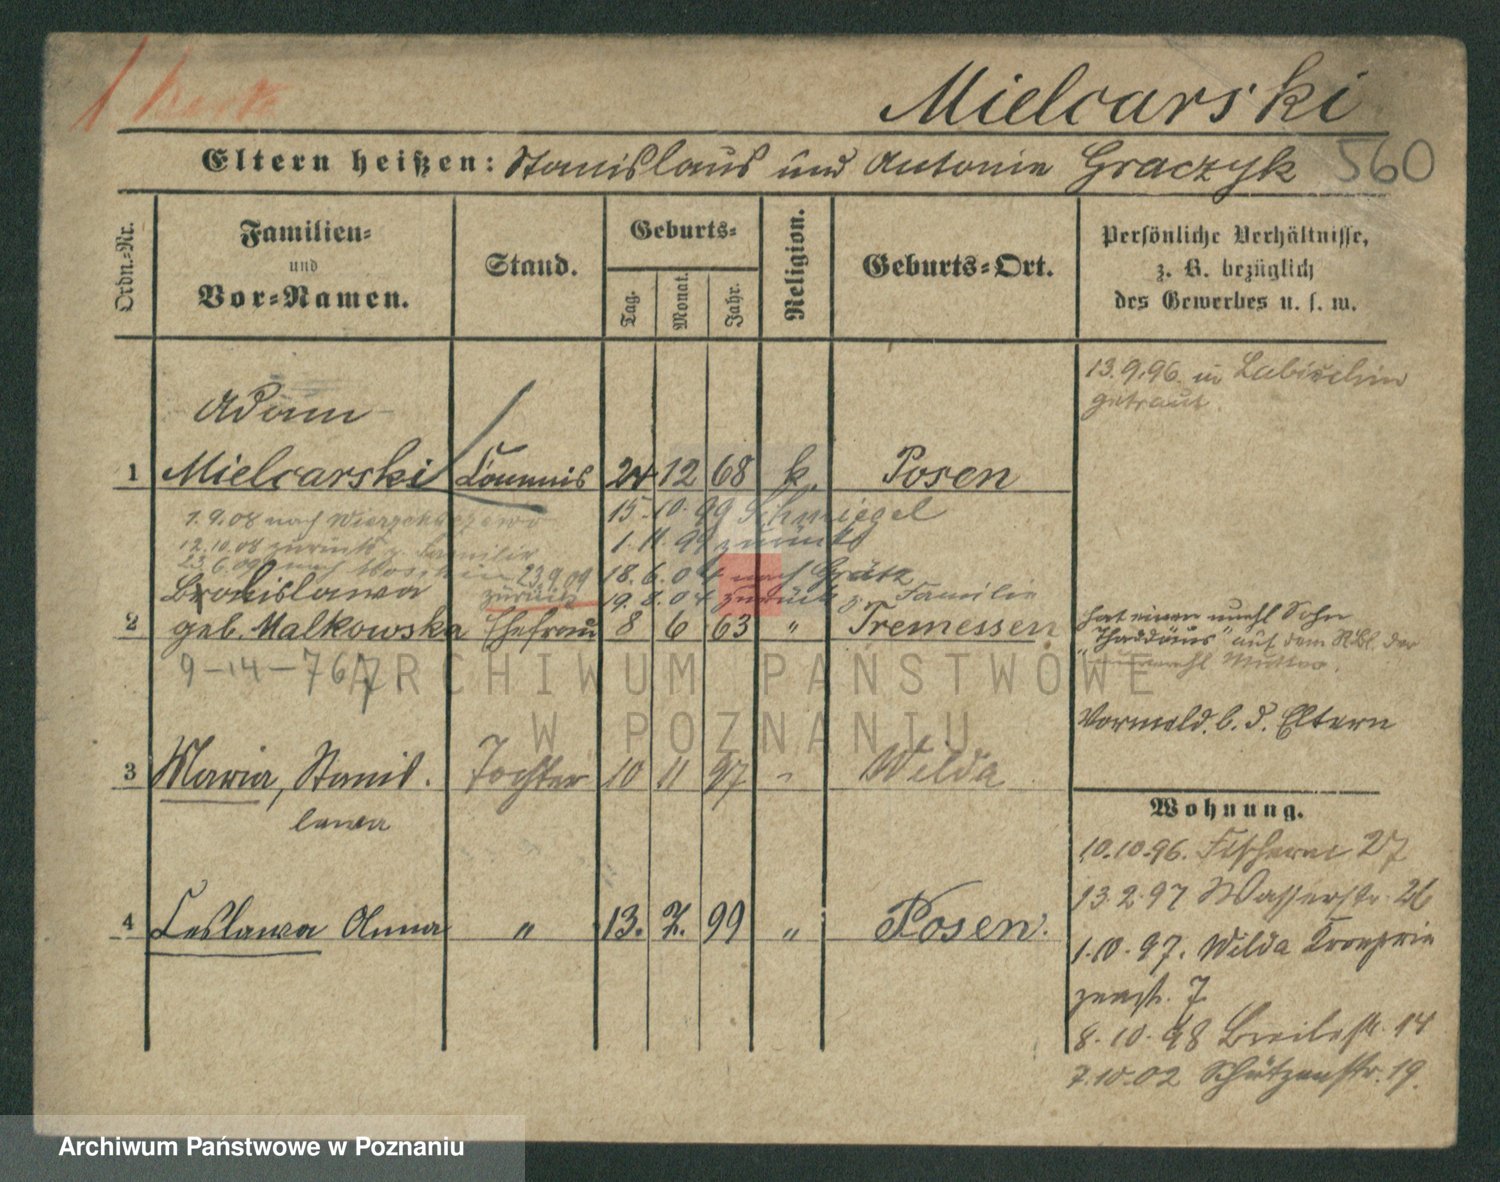 1 Karte
Mielcarski
Eltern heißen: Stanislaus und Antonie Graczyk
560
Ordn.-Nr.
Familien-
und
Vor-Namen.
Stand.
Geburts-
Tag.
Monat.
Jahr.
Religion.
Geburts-Ort.
Persönliche Verhältnisse,
z. B. bezüglich
des Gewerbes u. s. w.
13.9.96. in Labischin
getraut.
Adam
1 Mielcarski Commis 24 12 68 k. Posen
15.10.99 Schmiegel
1.9.08 nach
1.11.99 zurück
12.10.08 zurück z. Familie
23.6.09 nach 23.9.09
zurück
18.6.04 nach Grätz
19.8.04 zurück z. Familie
Bronislawa
2 geb. Malkowska Ehefrau 8 6 63 " Tremessen
hat einen unehl Sohn
"Thaddäus" auf dem Bl. der
unverehl Mutter.
9-14-767
Vormeld. b. d. Eltern
3 Maria, Stanis- Tochter 10 11 97 " Wilda
lawa
Wohnung.
10.10.96. Fischerei 27
13.2.97 Wasserstr. 26
4 Ceslawa Anna " 13. 7. 99 " Posen.
1.10.97. Wilda Kronprin
zenstr. 7
8.10.98 Breitestr. 14
7.10.02 Schützenstr. 19.
ARCHIWUM PAŃSTWOWE
W POZNANIU
Archiwum Państwowe w Poznaniu